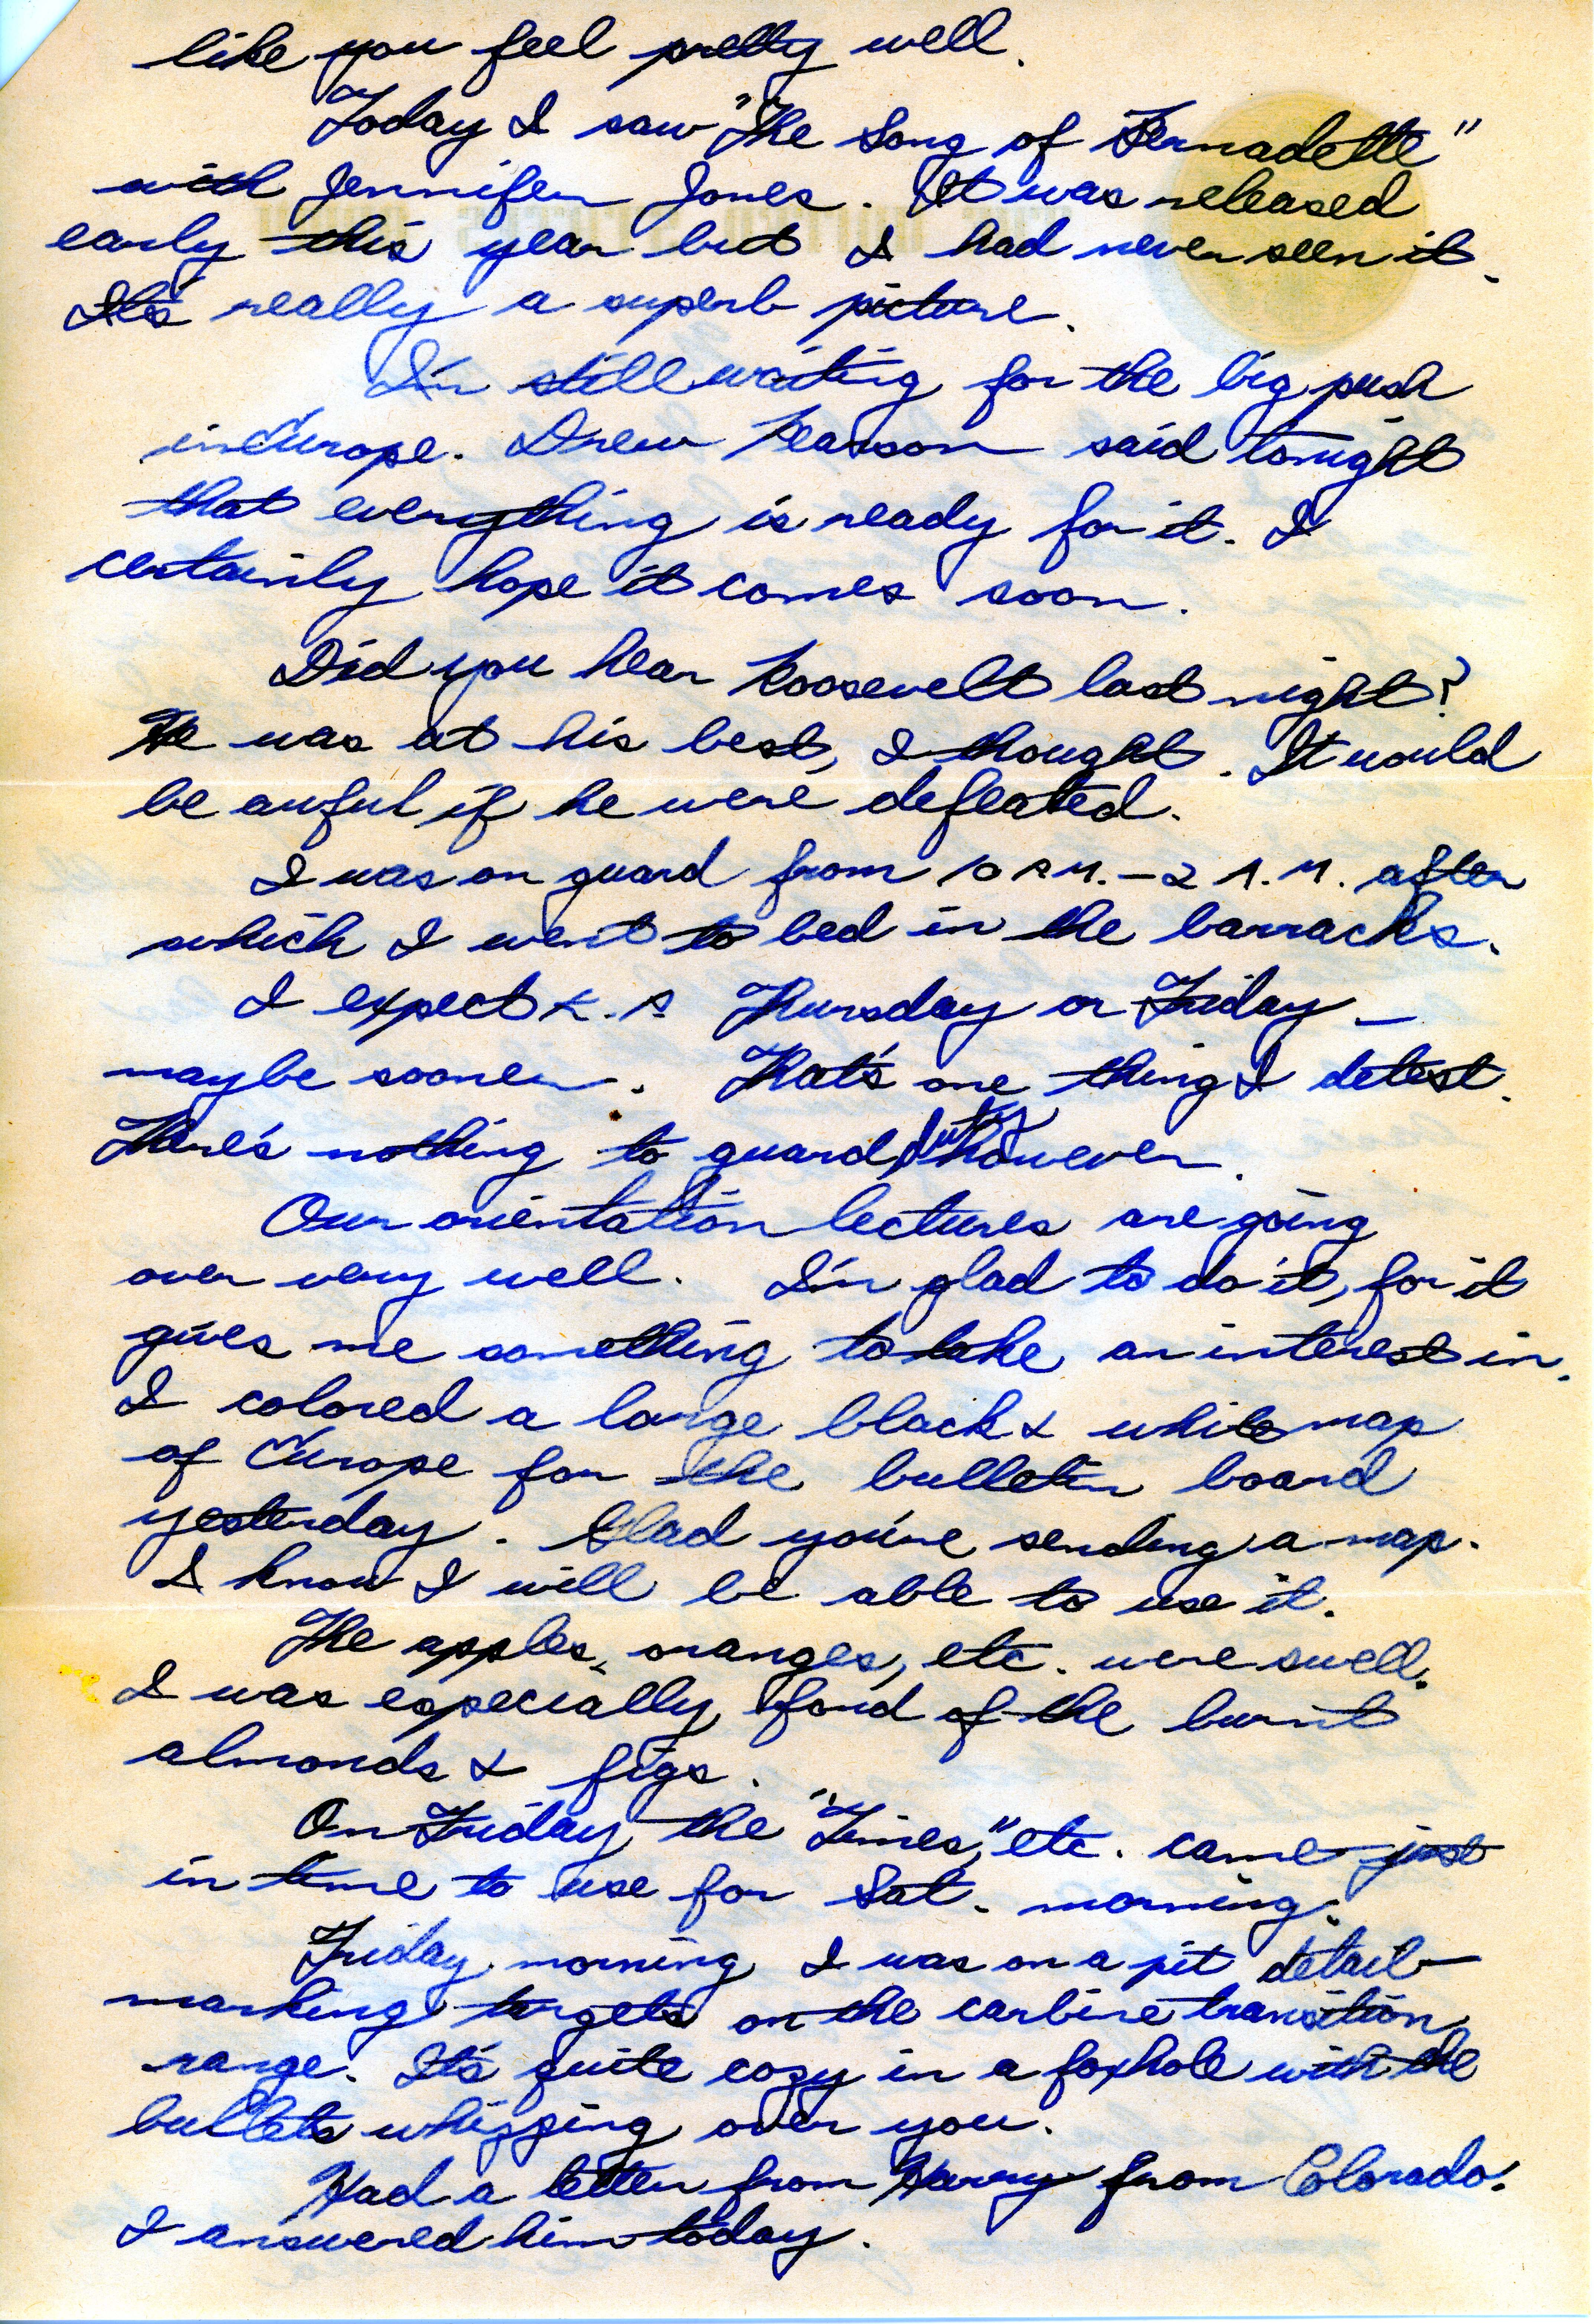 like you feel pretty well.
Today I saw "The Song of Bernadette"
with Jennifer Jones. It was released
early this year but I had never seen it.
It's really a superb picture.
I'm still waiting for the big push
in Europe. Drew Pearson said tonight
that everything is ready for it. I
certainly hope it comes soon.
Did you hear Roosevelt last night?
He was at his best, I thought. It would
be awful if he were defeated.
I was on guard from 10 P.M. - 2 A.M. after
which I went to bed in the barracks.
I expect K.P. Thursday or Friday -
maybe sooner. That's one thing I detest.
There's nothing to guard duty however.
Our orientation lectures are going
over very well. I'm glad to do it, for it
gives me something to take an interest in.
I colored a large black & white map
of Europe for the bulletin board
yesterday. Glad you're sending a map.
I know I will be able to use it.
The apples, oranges, etc. were swell.
I was especially fond of the burnt
almonds & figs.
On Friday the "Times," etc. came just
in time to use for Sat. morning.
Friday morning I was on a pit detail -
marking targets on the carbine transition
range. It's quite cozy in a foxhole with the
bullets whizzing over you.
Had a letter from Harry from Colorado.
I answered him today.